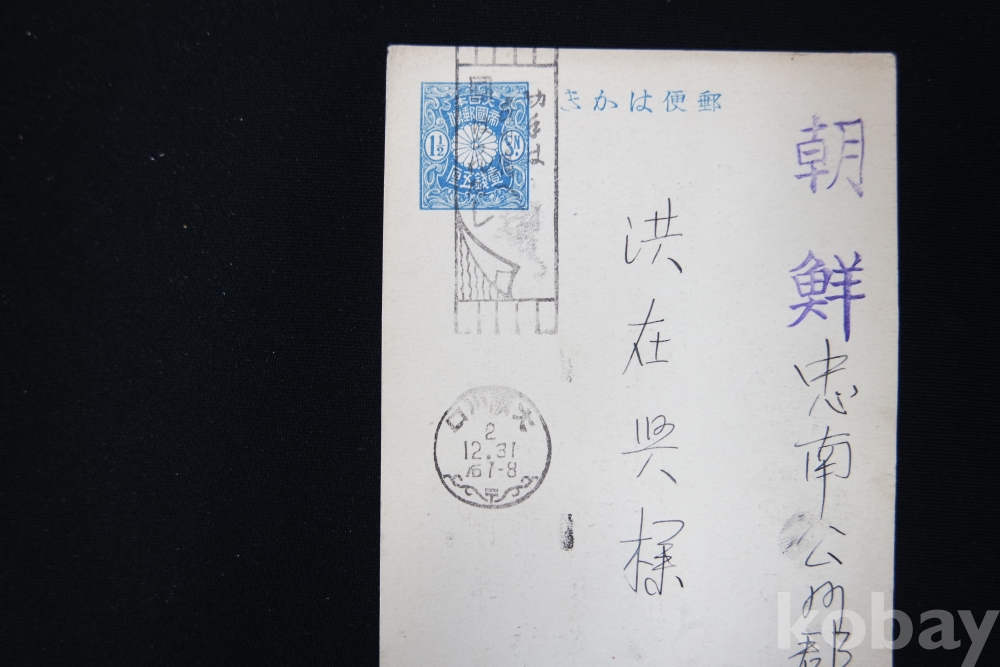 郵便はかき
大日本
帝國郵便
1½ SN.
壹錢五厘
切手は
朝鮮
忠南公州郡
洪在興様
大阪川口
2
12.31
后7-8
kobay